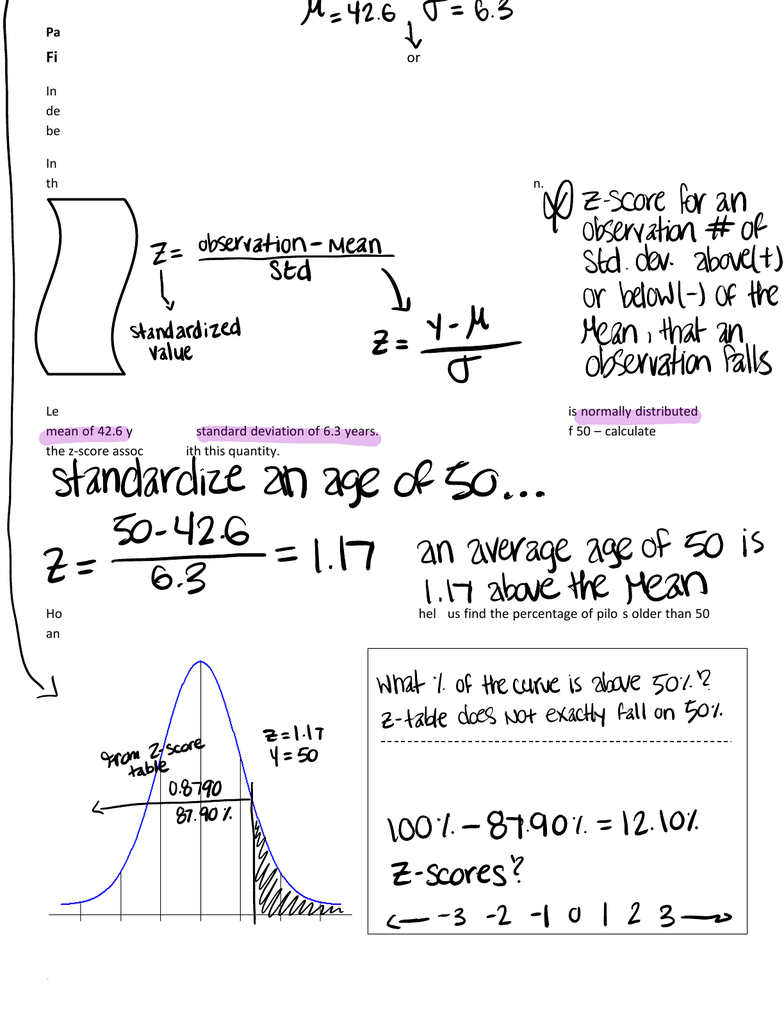 μ = 42.6 σ = 6.3
Pa
Fi
or
In
de
be
In
th
n.
z = observation - mean / std
standardized value
z = y - μ / σ
z-score for an
observation # of
std. dev. above(+)
or below(-) of the
mean, that an
observation falls
Le is normally distributed
mean of 42.6 y standard deviation of 6.3 years. f 50 – calculate
the z-score assoc ith this quantity.
standardize an age of 50...
z = 50-42.6 / 6.3 = 1.17
an average age of 50 is
1.17 above the mean
Ho hel us find the percentage of pilo s older than 50
an
from z-score
table
0.8790
87.90%
z=1.17
y=50
What % of the curve is above 50%?
z-table does NOT exactly fall on 50%.
100% - 87.90% = 12.10%
z-scores?
-3 -2 -1 0 1 2 3